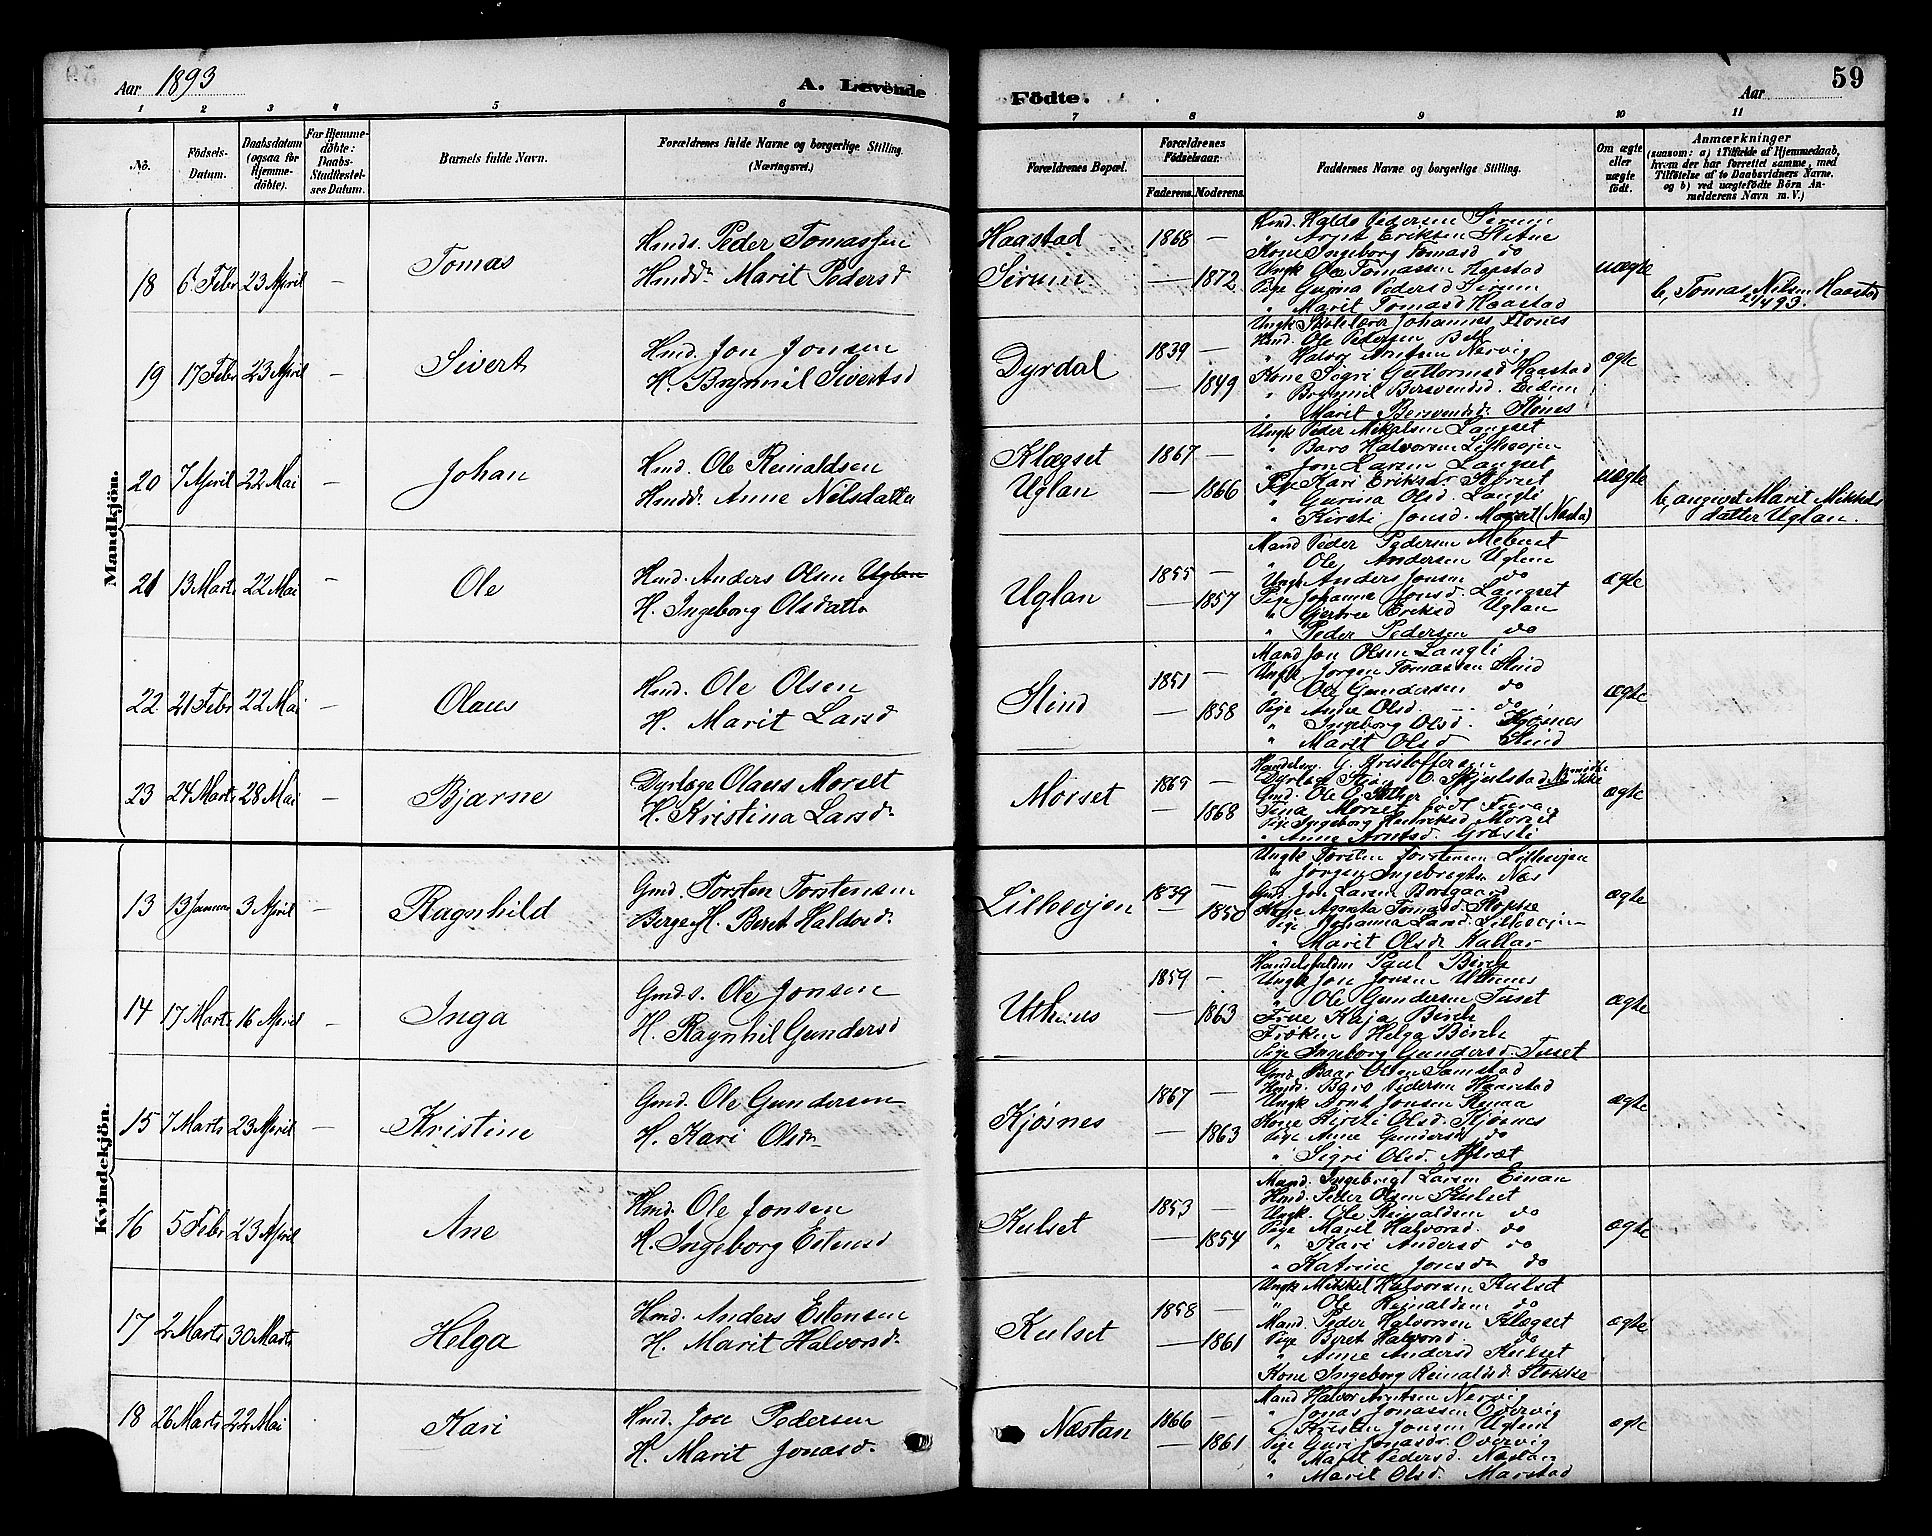 Aar 1893
A. Levende Födte.
Aar
59
1 2 3 4 5 6 7 8 9 10 11
No.
Födsels-Datum.
Daabsdatum (ogsaa for Hjemmedöbte).
For Hjemmedöbte: Daabs-Stadfæstelses Datum.
Barnets fulde Navn.
Forældrenes fulde Navne og borgerlige Stilling. (Næringsvei.)
Forældrenes Bopæl.
Forældrenes Födselsaar.
Faderens. Moderens.
Faddernes Navne og borgerlige Stilling.
Om ægte eller uægte födt.
Anmærkninger
(saasom: a) i Tilfælde af Hjemmedaab, hvem der har forrettet samme, med Tilföielse af to Daabsvidners Navne. og b) ved uægtefödte Börn Anmelderens Navn m. V.)
Mandkjön.
18 6 Febr 23 April — Tomas
Hmds. Peder Tomassen
Hmdd. Marit Pedersd
Haastad
Sirum
1868 —
— 1872
Hmd. Halds Pedersen Sirum
Kone Ingeborg Tomasd do
Ungk Ole Tomassen Haastad
Pige Gurina Pedersd Sirum
" Marit Tomasd Haastad
uægte
b, Tomas Nilsen Haastad
2/4 93.
19 17 Febr 23 April — Sivert
Hmd. Jon Jonsen
H. Brynnil Sivertsd
Dyrdal
1839 —
— 1849
Ungk Skolelærer Johannes Flønes
Hmd. Ole Pedersen
" Halvor Arntsen Nervig
Kone Sigri Guttormsd Haastad
" Brynnil Bersvendsd. Eidem
" Marit Bersvendsd. Flønes
ægte
20 7 April 22 Mai — Johan
Hmd. Ole Reinaldsen
Hmdd. Anne Nilsdatter
Klægset
Uglan
1867 —
— 1866
Ungk Peder Mikalsen Langset
" Baro Halvorsen Lillevojen
" Jon Larsen Langset
Pige Kari Eriksdr
" Gurina Olsd. Langli
" Kirsti Jonsd. (Næsta)
uægte
b, angivet Marit Mikkels
datter Uglan.
21 13 Marts 22 Mai — Ole
Hmd. Anders Olsen Uglan
H. Ingeborg Olsdatter
Uglan
1855 —
— 1857
Mand Peder Pedersen Mebust
" Ole Andersen Uglem
Ungk Anders Jonsen do
Pige Johanna Jonsd. Langset
" Gjertru Eriksd Uglan
" Peder Pedersen do
ægte
22 21 Febr 22 Mai — Olaus
Hmd. Ole Olsen
H. Marit Larsd
Slind
1851 —
— 1858
Mand Jon Olsen Langli
Ungk Jorgen Tomassen Slind
" Ole Gundersen do
Pige Anne Olsd. do
" Ingeborg Olsd. Kjøsnes
" Marit Olsd Slind
ægte
23 24 Marts 28 Mai — Bjarne
Dyrlæge Olaus Morset
H. Kristina Larsd.
Mørset
1865 —
— 1868
Handelsm. G. Kristoffersen
Gmd. Ole O.
Tina Morset född Fuera
Pige Ingeborg Henriksd Morset
" Anne Arntsd. Græsli
ægte
Kvindekjön.
13 13 Januar 3 April — Ragnhild
Gmd. Torsten Torstensen
Berge H. Beret Haldosd.
Lillevojen
1839 —
— 1850
Ungk Torsten Torstensen Lillevojen
" Jørgen Ingebrigts Næs
Gmd. Jon Larsen Borsgaard
Kone Agneta Tomasd. Stokke
Pige Johanna Larsd. Lillevojen
" Marit Olsdr Kallar
ægte
14 17 Marts 16 April — Inga
Gmds. Ole Jonsen
H. Ragnhil Gundersd
Uthus
1859 —
— 1863
Paul Birch
Ungk Jon Jonsen Uthus
" Ole Gundersen Tuset
Frue Kaja Birch
Frøken Helga Birch
Pige Ingeborg Gundersd. Tuset
ægte
15 7 Marts 23 April — Kristine
Gmd. Ole Gundersen
H. Kari Olsdr
Kjøsnes
1867 —
— 1863
Gmd Baar Olsen Samstad
Hmd. Baro Pedersen Haarstad
Ungk Arnt Jonsen Renaa
Kone Kirsti Olsd. Kjøsnes
Pige Anne Gundersd do
" Sigri Olsd.
ægte
16 5 Febr 23 April — Ane
Hmd. Ole Jonsen
H. Ingeborg Estensd
Kulset
1853 —
— 1854
Mand. Ingebrigt Larsen Einan
Hmd. Peder Olsen Kulset
Ungk. Ole Reinaldsen do
Pige Marit Halvorsd. do
" Kari Andersd do
" Katrine Jonsdr do
ægte
17 2 Marts 30 Marts Helga
Hmd. Anders Estensen
H. Marit Halvorsd.
Kulset
1858 —
— 1861
Ungk Mikkel Halvorsen Kulset
" Ole Reinaldsen do
Mand. Peder Halvorsen Klægset
Pige Beret Halvorsd. do
" Anne Andersd Kulset
Kone Ingeborg Reinaldsd. Stokke
ægte
18 26 Marts 22 Mai Kari
Hmd. Jon Pedersen
H. Marit Jonasd.
Næstan
1866 —
— 1861
Mand Halvor Arntsen Nervig
" Jonas Jonassen Overvig
" Kristen Jonsen Uglem
Pige Guri Jonasdr. Overvig
" Marit Pedersd. Næstan
" Marit Olsd. Marstad
ægte